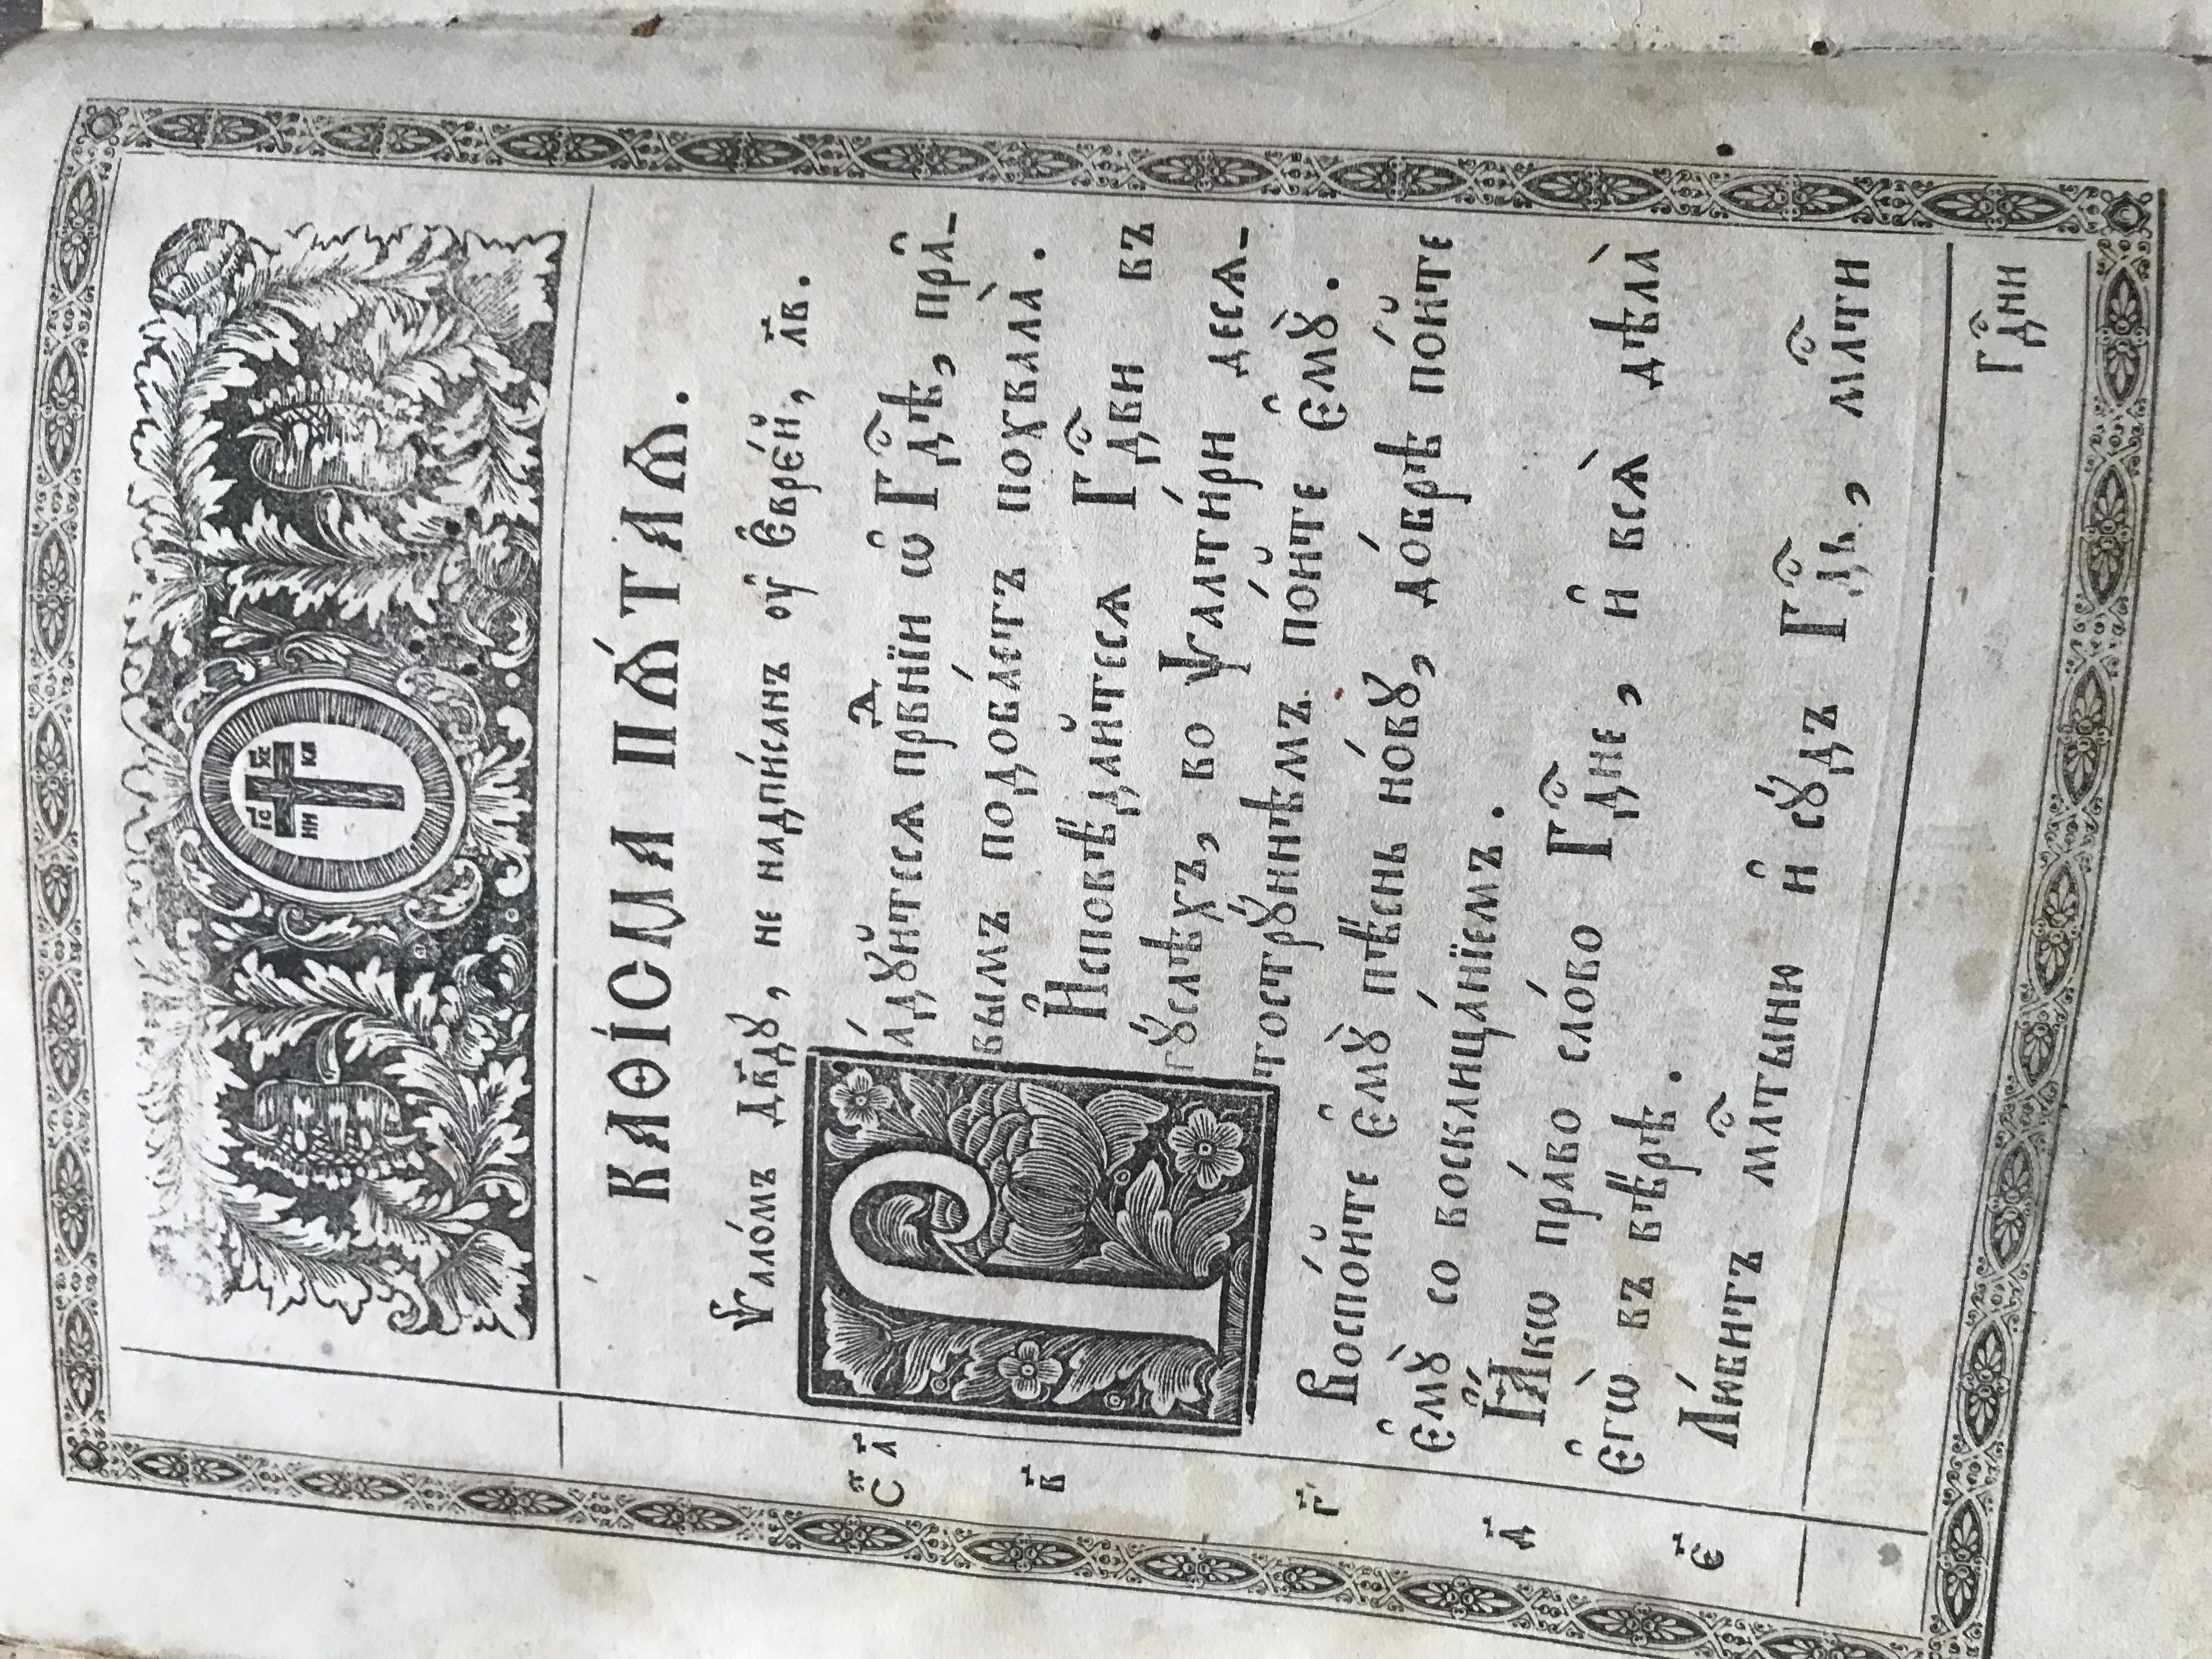 І҃С Х҃С
НИ КА
КАѲІ́СМА ПѦ́ТАѦ.
Ѱало́мъ Дв҃ду, не надпи́санъ оу҆ Є҆вре́й, л҃в.
С҃ а҃ Ра́дꙋйтесѧ првⷣнїи ѡ҆ Гдⷭ҇ѣ, пра̑-
вымъ подоба́етъ похвала̀.
в҃ И҆сповѣ́дайтесѧ Гдⷭ҇ви въ
гꙋ́слѣхъ, во Ѱалти́ри десѧ-
тострꙋ́ннѣмъ по́йте є҆мꙋ̀.
г҃ Воспо́йте є҆мꙋ̀ пѣ́снь но́вꙋ, до́брѣ по́йте
є҆мꙋ̀ со восклица́нїемъ.
д҃ Ꙗ҆́кѡ пра́во сло́во Гдⷭ҇не, и҆ всѧ̀ дѣла̀
є҆гѡ̀ въ вѣ́рѣ.
є҃ Лю́битъ млⷭ҇тыню и҆ сꙋ́дъ Гдⷭ҇ь, млⷭ҇ти
Гдⷭ҇ни